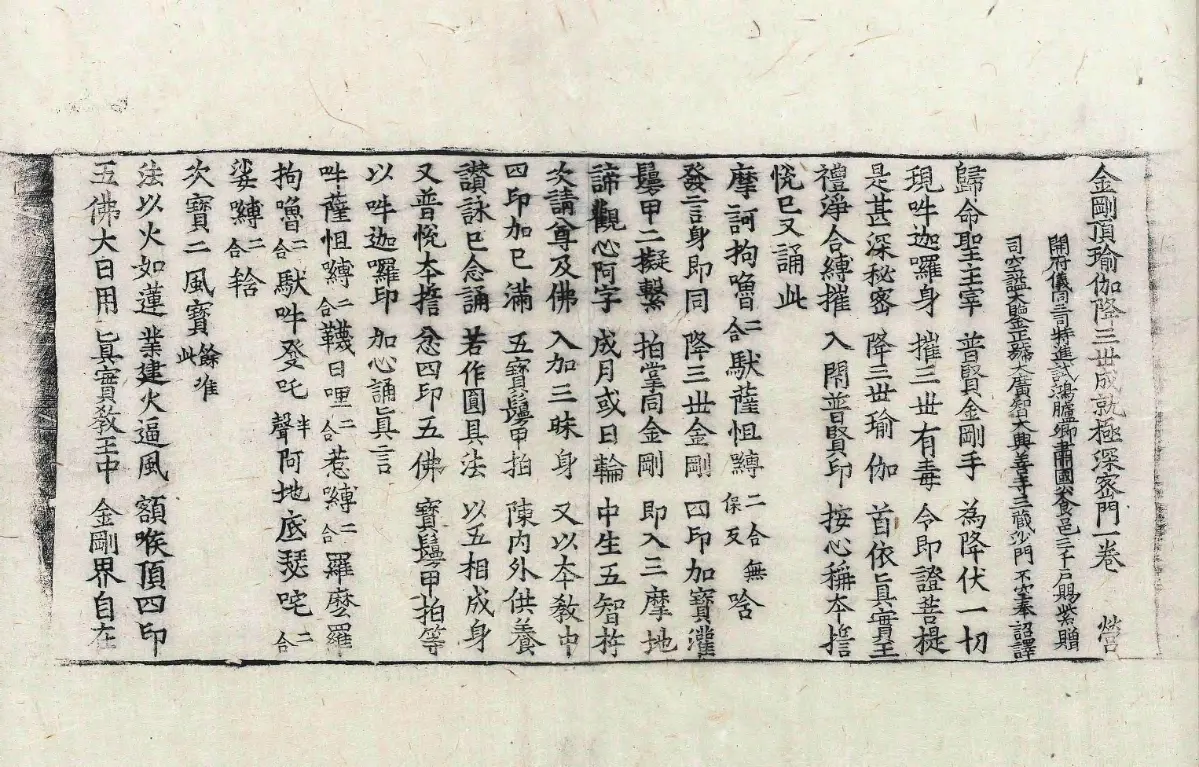 金剛頂瑜伽降三世成就極深密門一卷 營
開府儀同三司特進試鴻臚卿肅國公食邑三千戶賜紫贈
司空謚大鑒正號大廣智大興善寺三藏沙門不空奉 詔譯
歸命聖主宰 普賢金剛手 為降伏一切
現吽迦囉身 摧三世有毒 令即證菩提
是甚深秘密 降三世瑜伽 首依真實王
禮淨合縛摧 入開普賢印 按心稱本誓
悅已又誦此
摩訶拘嚕二合馱薩怛縛二合無保反唅
發言身即同 降三世金剛 四印加寶灌
鬘甲二擬繫 拍掌同金剛 即入三摩地
諦觀心阿字 成月或日輪 中生五智杵
次請尊及佛 入加三昧身 又以本教中
四印加已滿 五寶鬘甲拍 陳內外供養
讚詠已念誦 若作圓具法 以五相成身
又普悅本誓 忿四印五佛 寶鬘甲拍等
以吽迦囉印 加心誦真言
吽薩怛縛二合韈日哩二合惹縛二合羅麼羅
拘嚕二合馱吽發吒半聲阿地底瑟咤二合
娑嚩二合𤙖
次寶二風寶餘准此
法以火如蓮 業建火逼風 額喉頂四印
五佛大日用 真實教王中 金剛界自在